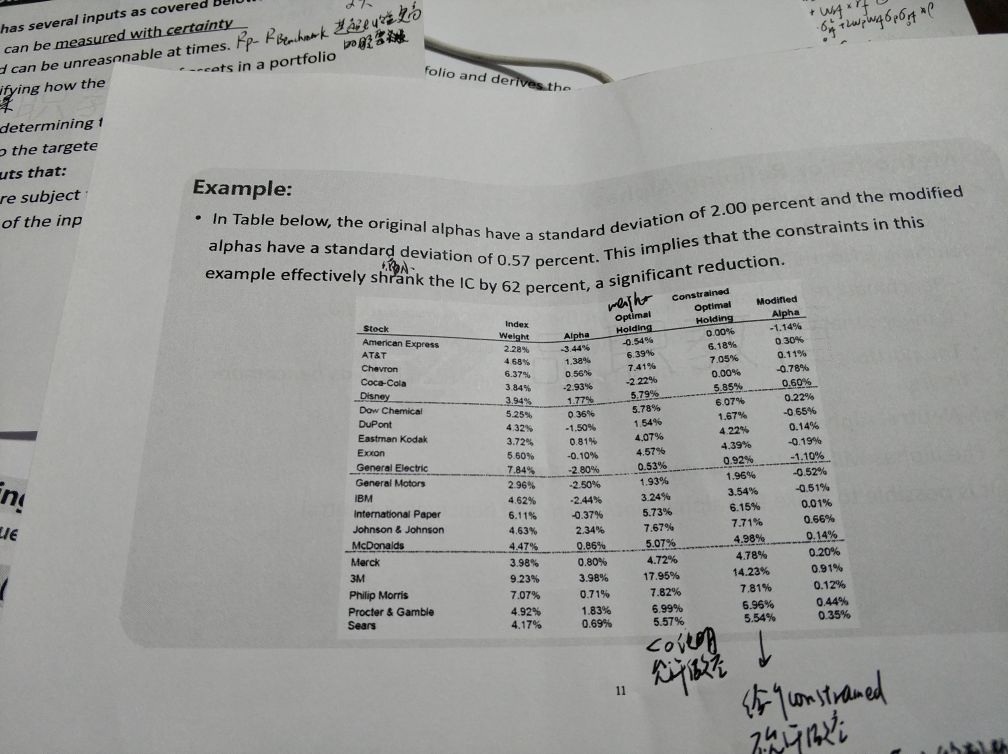 has several inputs as covered
can be measured with certainty
d can be unreasonable at times. Rp - RBenchmark
ifying how the
ssets in a portfolio
folio and derives the
determining t
o the targete
uts that:
re subject
of the inp
Example:
• In Table below, the original alphas have a standard deviation of 2.00 percent and the modified
alphas have a standard deviation of 0.57 percent. This implies that the constraints in this
example effectively shrank the IC by 62 percent, a significant reduction.
Stock Index Weight Alpha Optimal Holding Constrained Optimal Holding Modified Alpha
American Express 2.28% -3.44% -0.54% 0.00% -1.14%
AT&T 4.68% 1.38% 6.39% 6.18% 0.30%
Chevron 6.37% 0.56% 7.41% 7.05% 0.11%
Coca-Cola 3.84% -2.93% -2.22% 0.00% -0.78%
Disney 3.94% 1.77% 5.79% 5.85% 0.60%
Dow Chemical 5.25% 0.36% 5.78% 6.07% 0.22%
DuPont 4.32% -1.50% 1.54% 1.67% -0.65%
Eastman Kodak 3.72% 0.81% 4.07% 4.22% 0.14%
Exxon 5.60% -0.10% 4.57% 4.39% -0.19%
General Electric 7.84% -2.80% 0.53% 0.92% -1.10%
General Motors 2.96% -2.50% 1.93% 1.96% -0.52%
IBM 4.62% -2.44% 3.24% 3.54% -0.51%
International Paper 6.11% -0.37% 5.73% 6.15% 0.01%
Johnson & Johnson 4.63% 2.34% 7.67% 7.71% 0.66%
McDonalds 4.47% 0.86% 5.07% 4.98% 0.14%
Merck 3.98% 0.80% 4.72% 4.78% 0.20%
3M 9.23% 3.98% 17.95% 14.23% 0.91%
Philip Morris 7.07% 0.71% 7.82% 7.81% 0.12%
Procter & Gamble 4.92% 1.83% 6.99% 6.96% 0.44%
Sears 4.17% 0.69% 5.57% 5.54% 0.35%
constrained
11